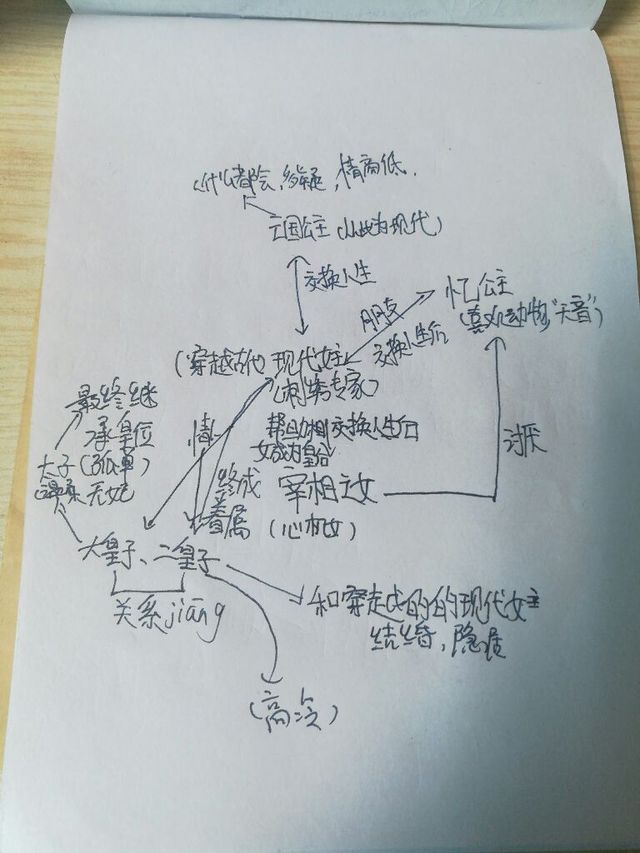 什么都会,多疑,情商低.
亡国公主(从此为现代)
交换人生
朋友
忆公主
(喜欢动物,"天音")
交换人生后
(穿越古代 现代女主
(刺绣专家)
最终继
承皇位
太子(孤单)
无妃
情
帮助
交换人生后
女成为皇后
讨厌
终成
眷属
宰相之女
(心机女)
大皇子、二皇子
关系jiāng
和穿越过的的现代女主
结婚,隐居
(高冷)